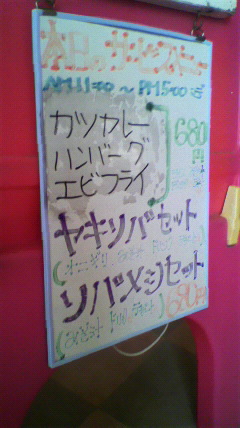 本日のサービスメニュー
AM11:00 ~ PM5:00 まで
カツカレー
ハンバーグ
エビフライ
680円
ヤキソバセット
ソバメシセット
680円